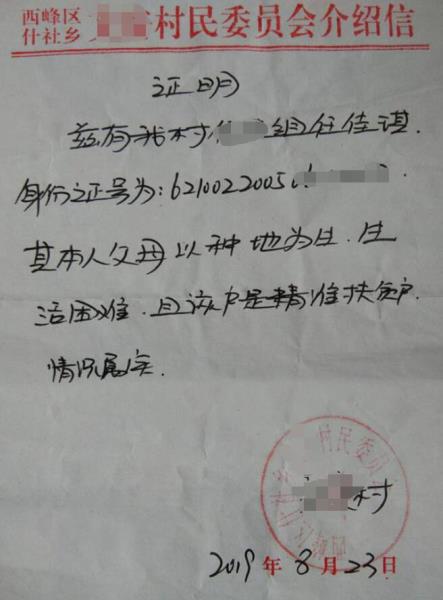 西峰区
什社乡 村民委员会介绍信
证明
兹有我村 组任佳琪.
身份证号为:6210022005
其本人父母以种地为生.生
活困难.且该户是精准扶贫户.
情况属实.
村民委员
村
2019年8月23日